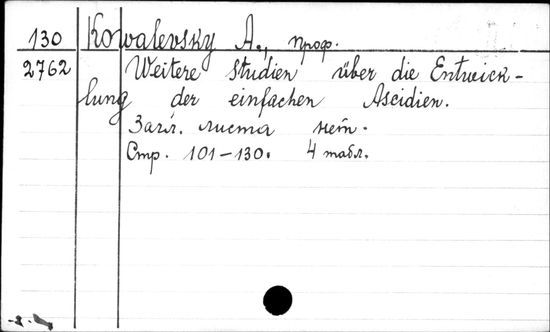 130 Kowalevsky A., проф.
2762 Weitere Studien über die Entwick-
lung der einfachen Ascidien.
Загл. листа нет.
Стр. 101-130. 4 табл.